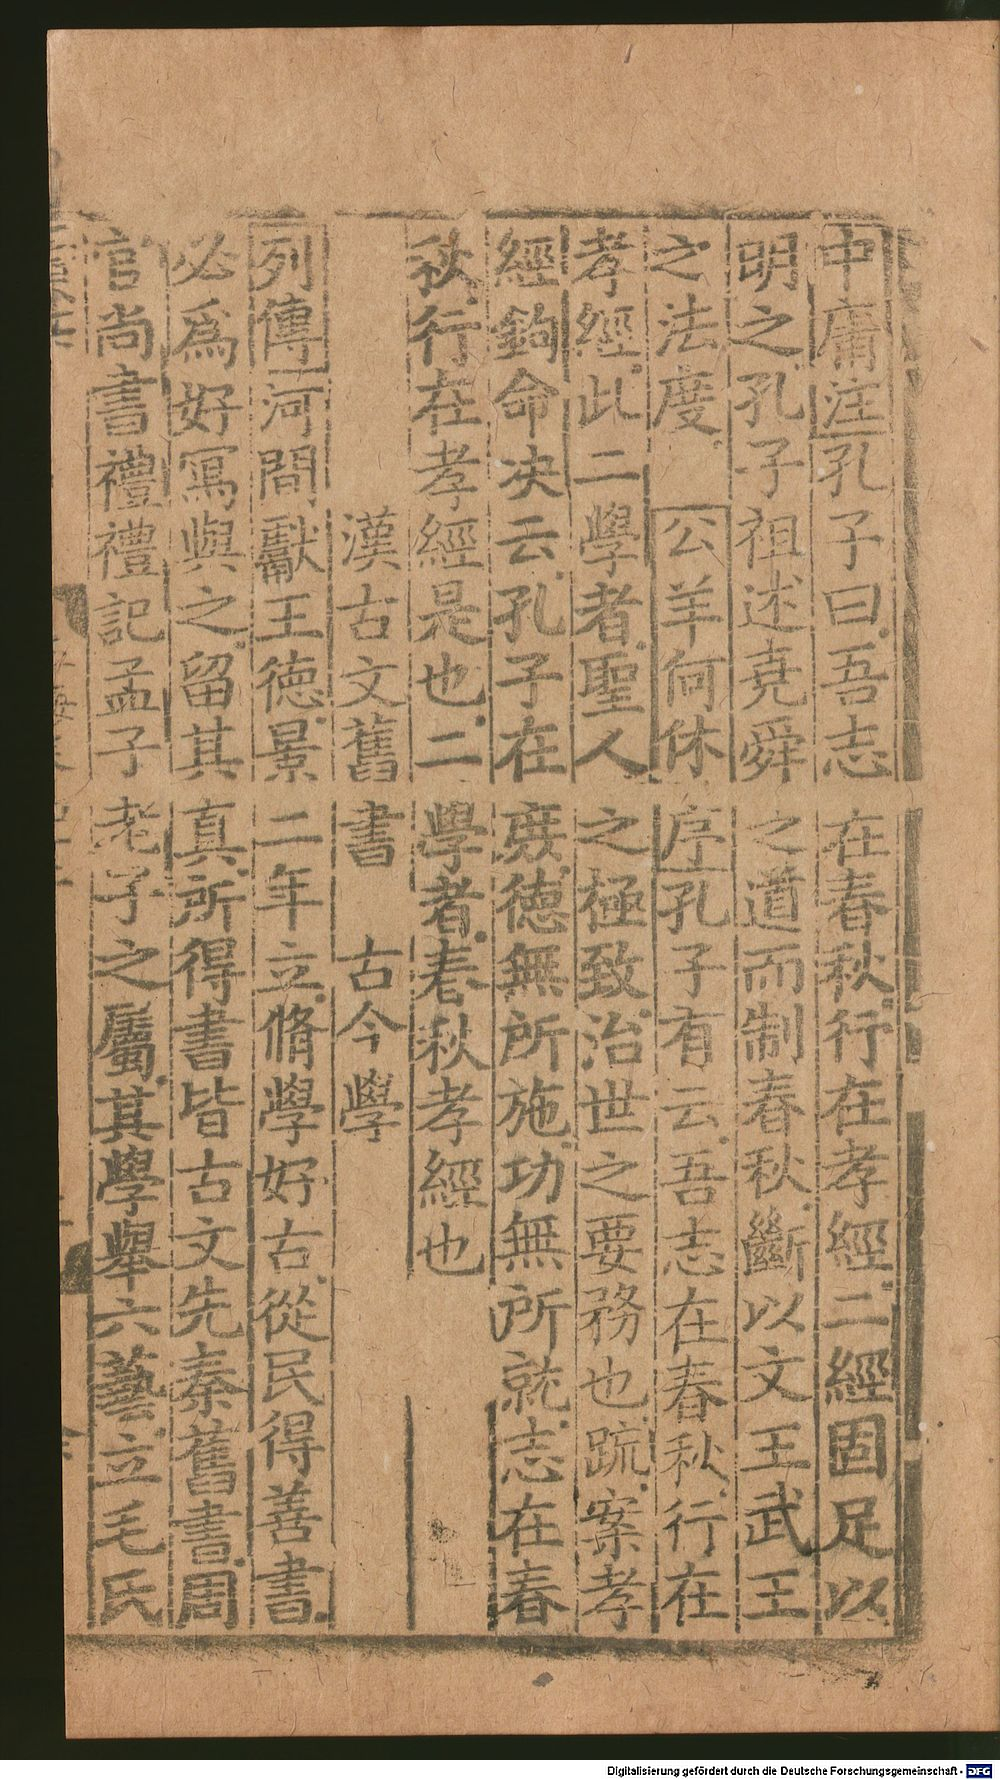 中庸注孔子曰吾志在春秋行在孝經二經固足以
明之孔子祖述堯舜之道而制春秋斷以文王武王
之法度 公羊何休序孔子有云吾志在春秋行在
孝經此二學者聖人之極致治世之要務也疏案孝
經鉤命决云孔子在庶德無所施功無所就志在春
秋行在孝經是也二學者春秋孝經也
漢古文舊書 古今學
列傳河間獻王德景二年立脩學好古從民得善書
必爲好寫與之留其真所得書皆古文先秦舊書周
官尚書禮禮記孟子老子之屬其學舉六藝立毛氏
Digitalisierung gefördert durch die Deutsche Forschungsgemeinschaft - DFG